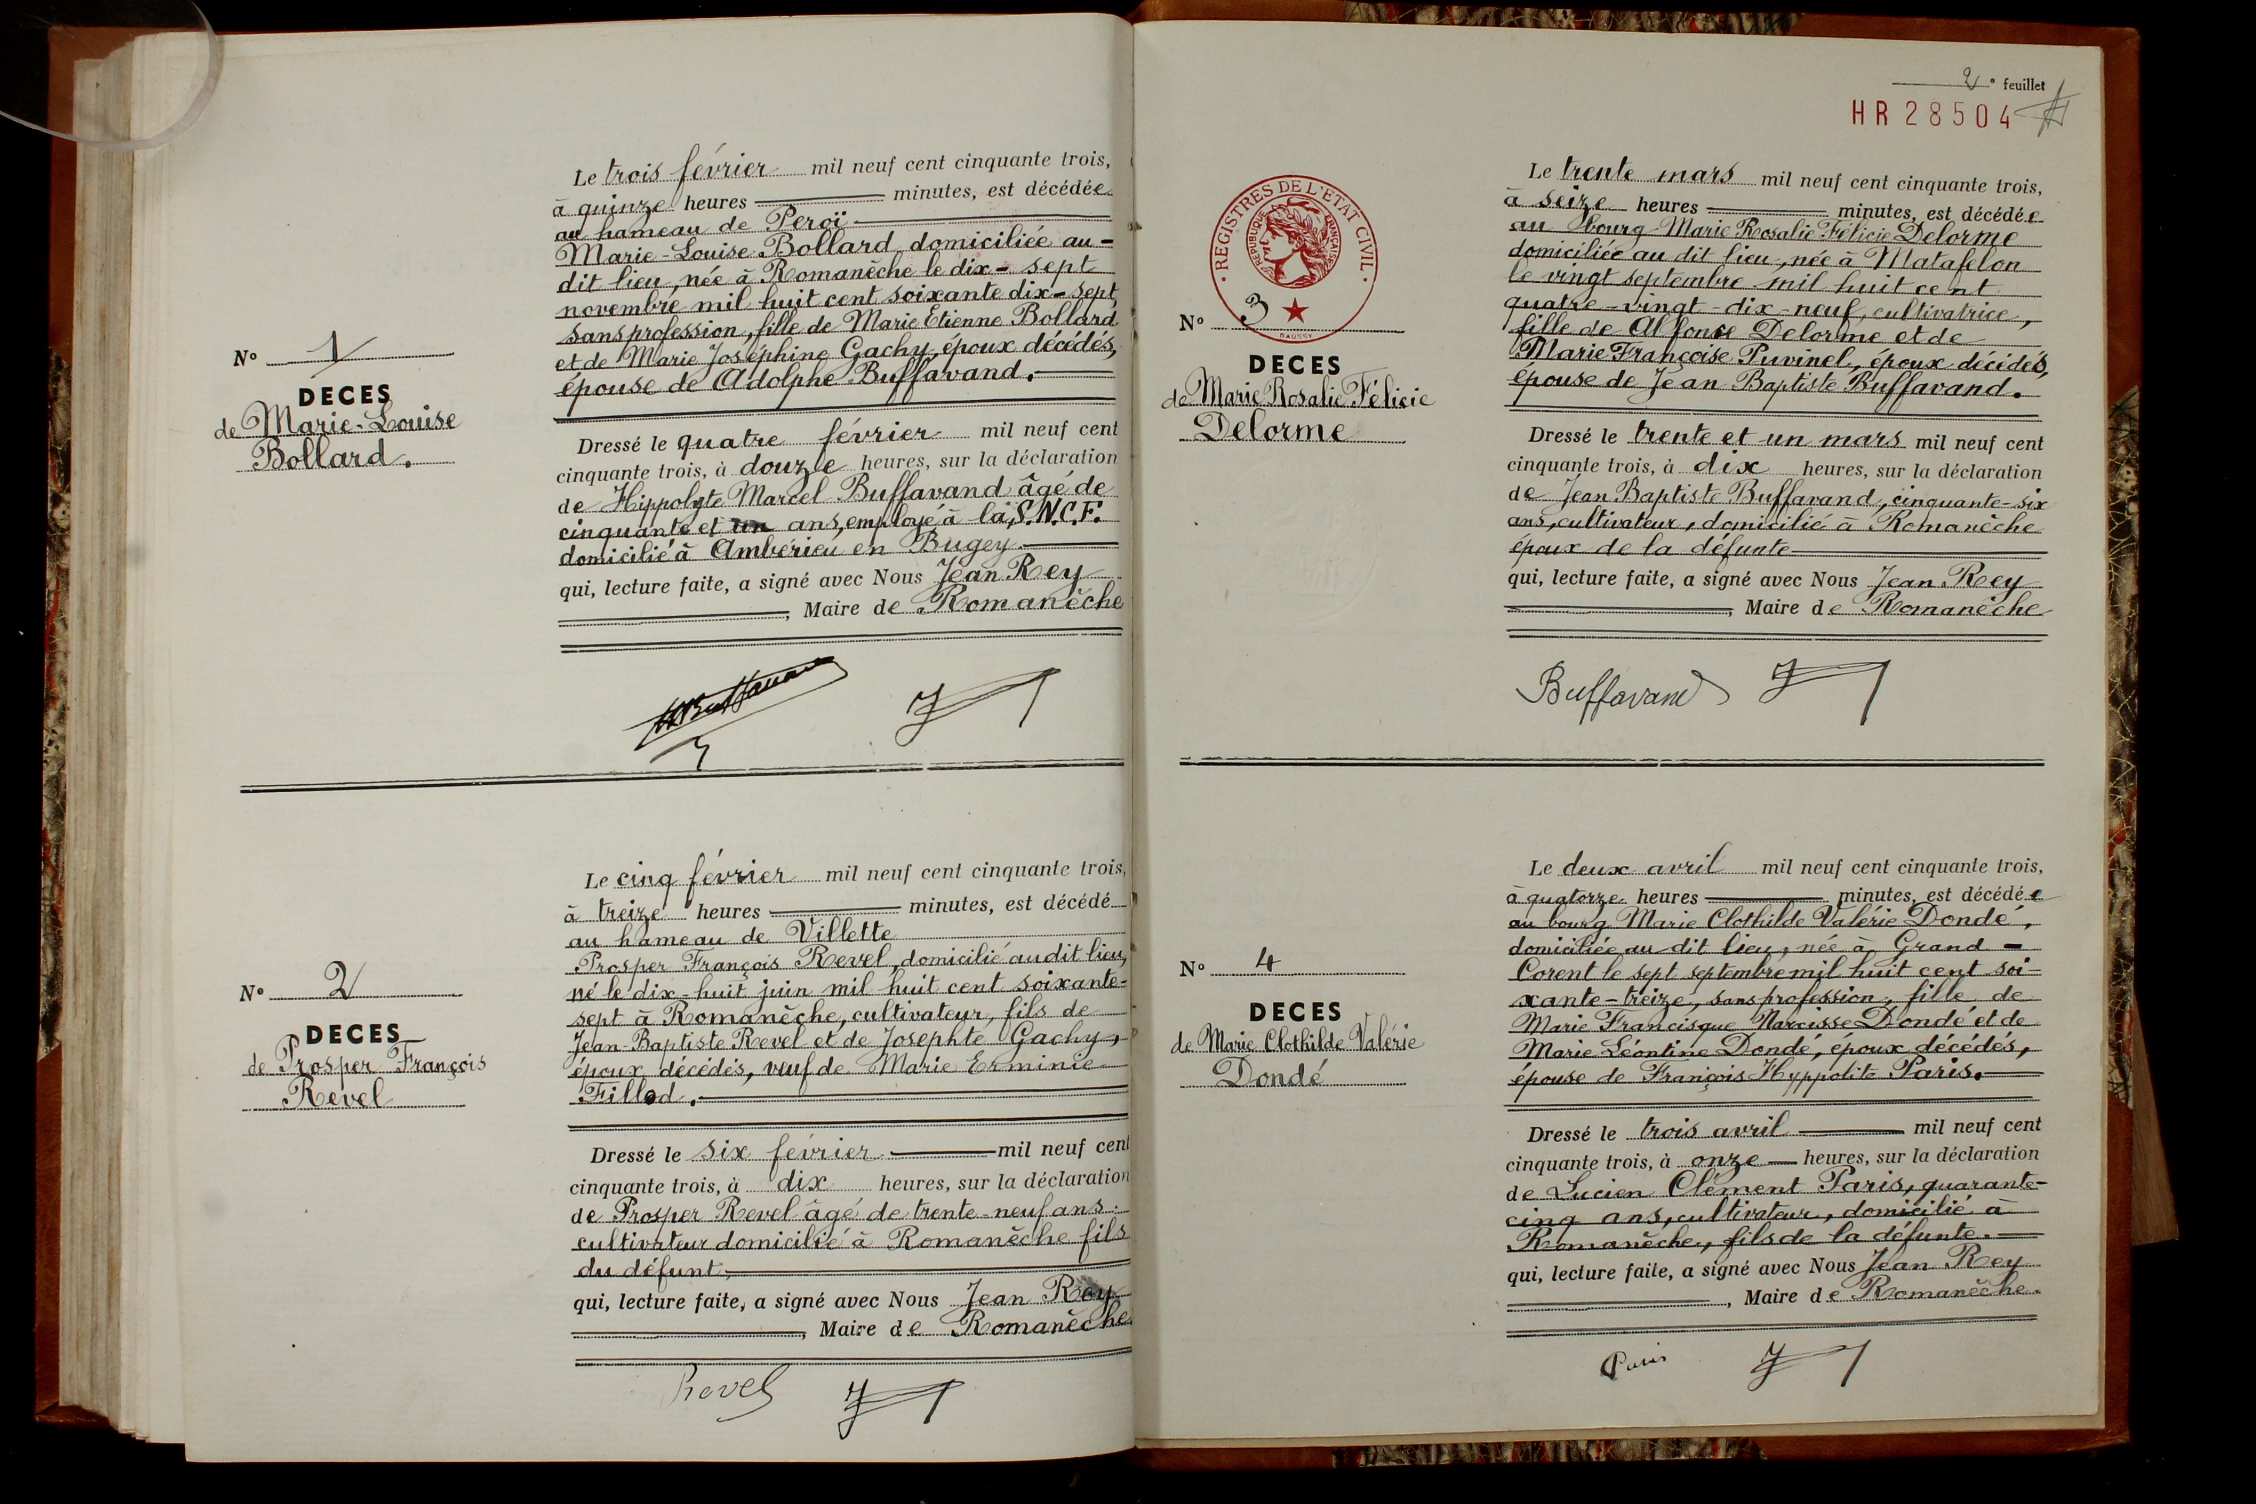 Le trois février mil neuf cent cinquante trois,
à quinze heures minutes, est décédée
au hameau de Peroï
Marie-Louise Bollard, domiciliée au-
dit lieu, née à Romanèche le dix-sept
novembre mil huit cent soixante dix-sept,
sans profession, fille de Marie Etienne Bollard
et de Marie Joséphine Gachy, époux décédés,
épouse de Adolphe Buffavand.
N° 1
DECES
de Marie-Louise
Bollard.
Dressé le quatre février mil neuf cent
cinquante trois, à douze heures, sur la déclaration
de Hippolyte Marcel Buffavand âgé de
cinquante et un ans, employé à la S.N.C.F.
domicilié à Ambérieu en Bugey.
qui, lecture faite, a signé avec Nous Jean Rey
, Maire de Romanèche
Le cinq février mil neuf cent cinquante trois,
à treize heures minutes, est décédé
au hameau de Villette
Prosper François Revel, domicilié audit lieu,
né le dix-huit juin mil huit cent soixante-
sept à Romanèche, cultivateur, fils de
Jean-Baptiste Revel et de Josephte Gachy,
époux décédés, veuf de Marie Erminie
Fillod.
N° 2
DECES
de Prosper François
Revel
Dressé le six février mil neuf cent
cinquante trois, à dix heures, sur la déclaration
de Prosper Revel âgé de trente-neuf ans
cultivateur domicilié à Romanèche fils
du défunt,
qui, lecture faite, a signé avec Nous Jean Rey
, Maire de Romanèche
Revel
2e feuillet
HR 28504
REGISTRES DE L'ETAT CIVIL
REPUBLIQUE FRANÇAISE
Le trente mars mil neuf cent cinquante trois,
à seize heures minutes, est décédée
au bourg Marie Rosalie Félicie Delorme
domiciliée au dit lieu, née à Matafelon
le vingt septembre mil huit cent
quatre-vingt-dix-neuf, cultivatrice,
fille de Alfonse Delorme et de
Marie Françoise Puvinel, époux décédés,
épouse de Jean Baptiste Buffavand.
N° 3
DECES
de Marie Rosalie Félicie
Delorme
Dressé le trente et un mars mil neuf cent
cinquante trois, à dix heures, sur la déclaration
de Jean Baptiste Buffavand, cinquante-six
ans, cultivateur, domicilié à Romanèche
époux de la défunte
qui, lecture faite, a signé avec Nous Jean Rey
, Maire de Romanèche
Buffavand
Le deux avril mil neuf cent cinquante trois,
à quatorze heures minutes, est décédée
au bourg Marie Clothilde Valérie Dondé,
domiciliée au dit lieu, née à Grand-
Corent le sept septembre mil huit cent soi-
xante-treize, sans profession, fille de
Marie Francisque Narcisse Dondé et de
Marie Léontine Dondé, époux décédés,
épouse de François Hyppolite Paris.
N° 4
DECES
de Marie Clothilde Valérie
Dondé
Dressé le trois avril mil neuf cent
cinquante trois, à onze heures, sur la déclaration
de Lucien Clément Paris, quarante-
cinq ans, cultivateur, domicilié à
Romanèche, fils de la défunte.
qui, lecture faite, a signé avec Nous Jean Rey
, Maire de Romanèche.
Paris